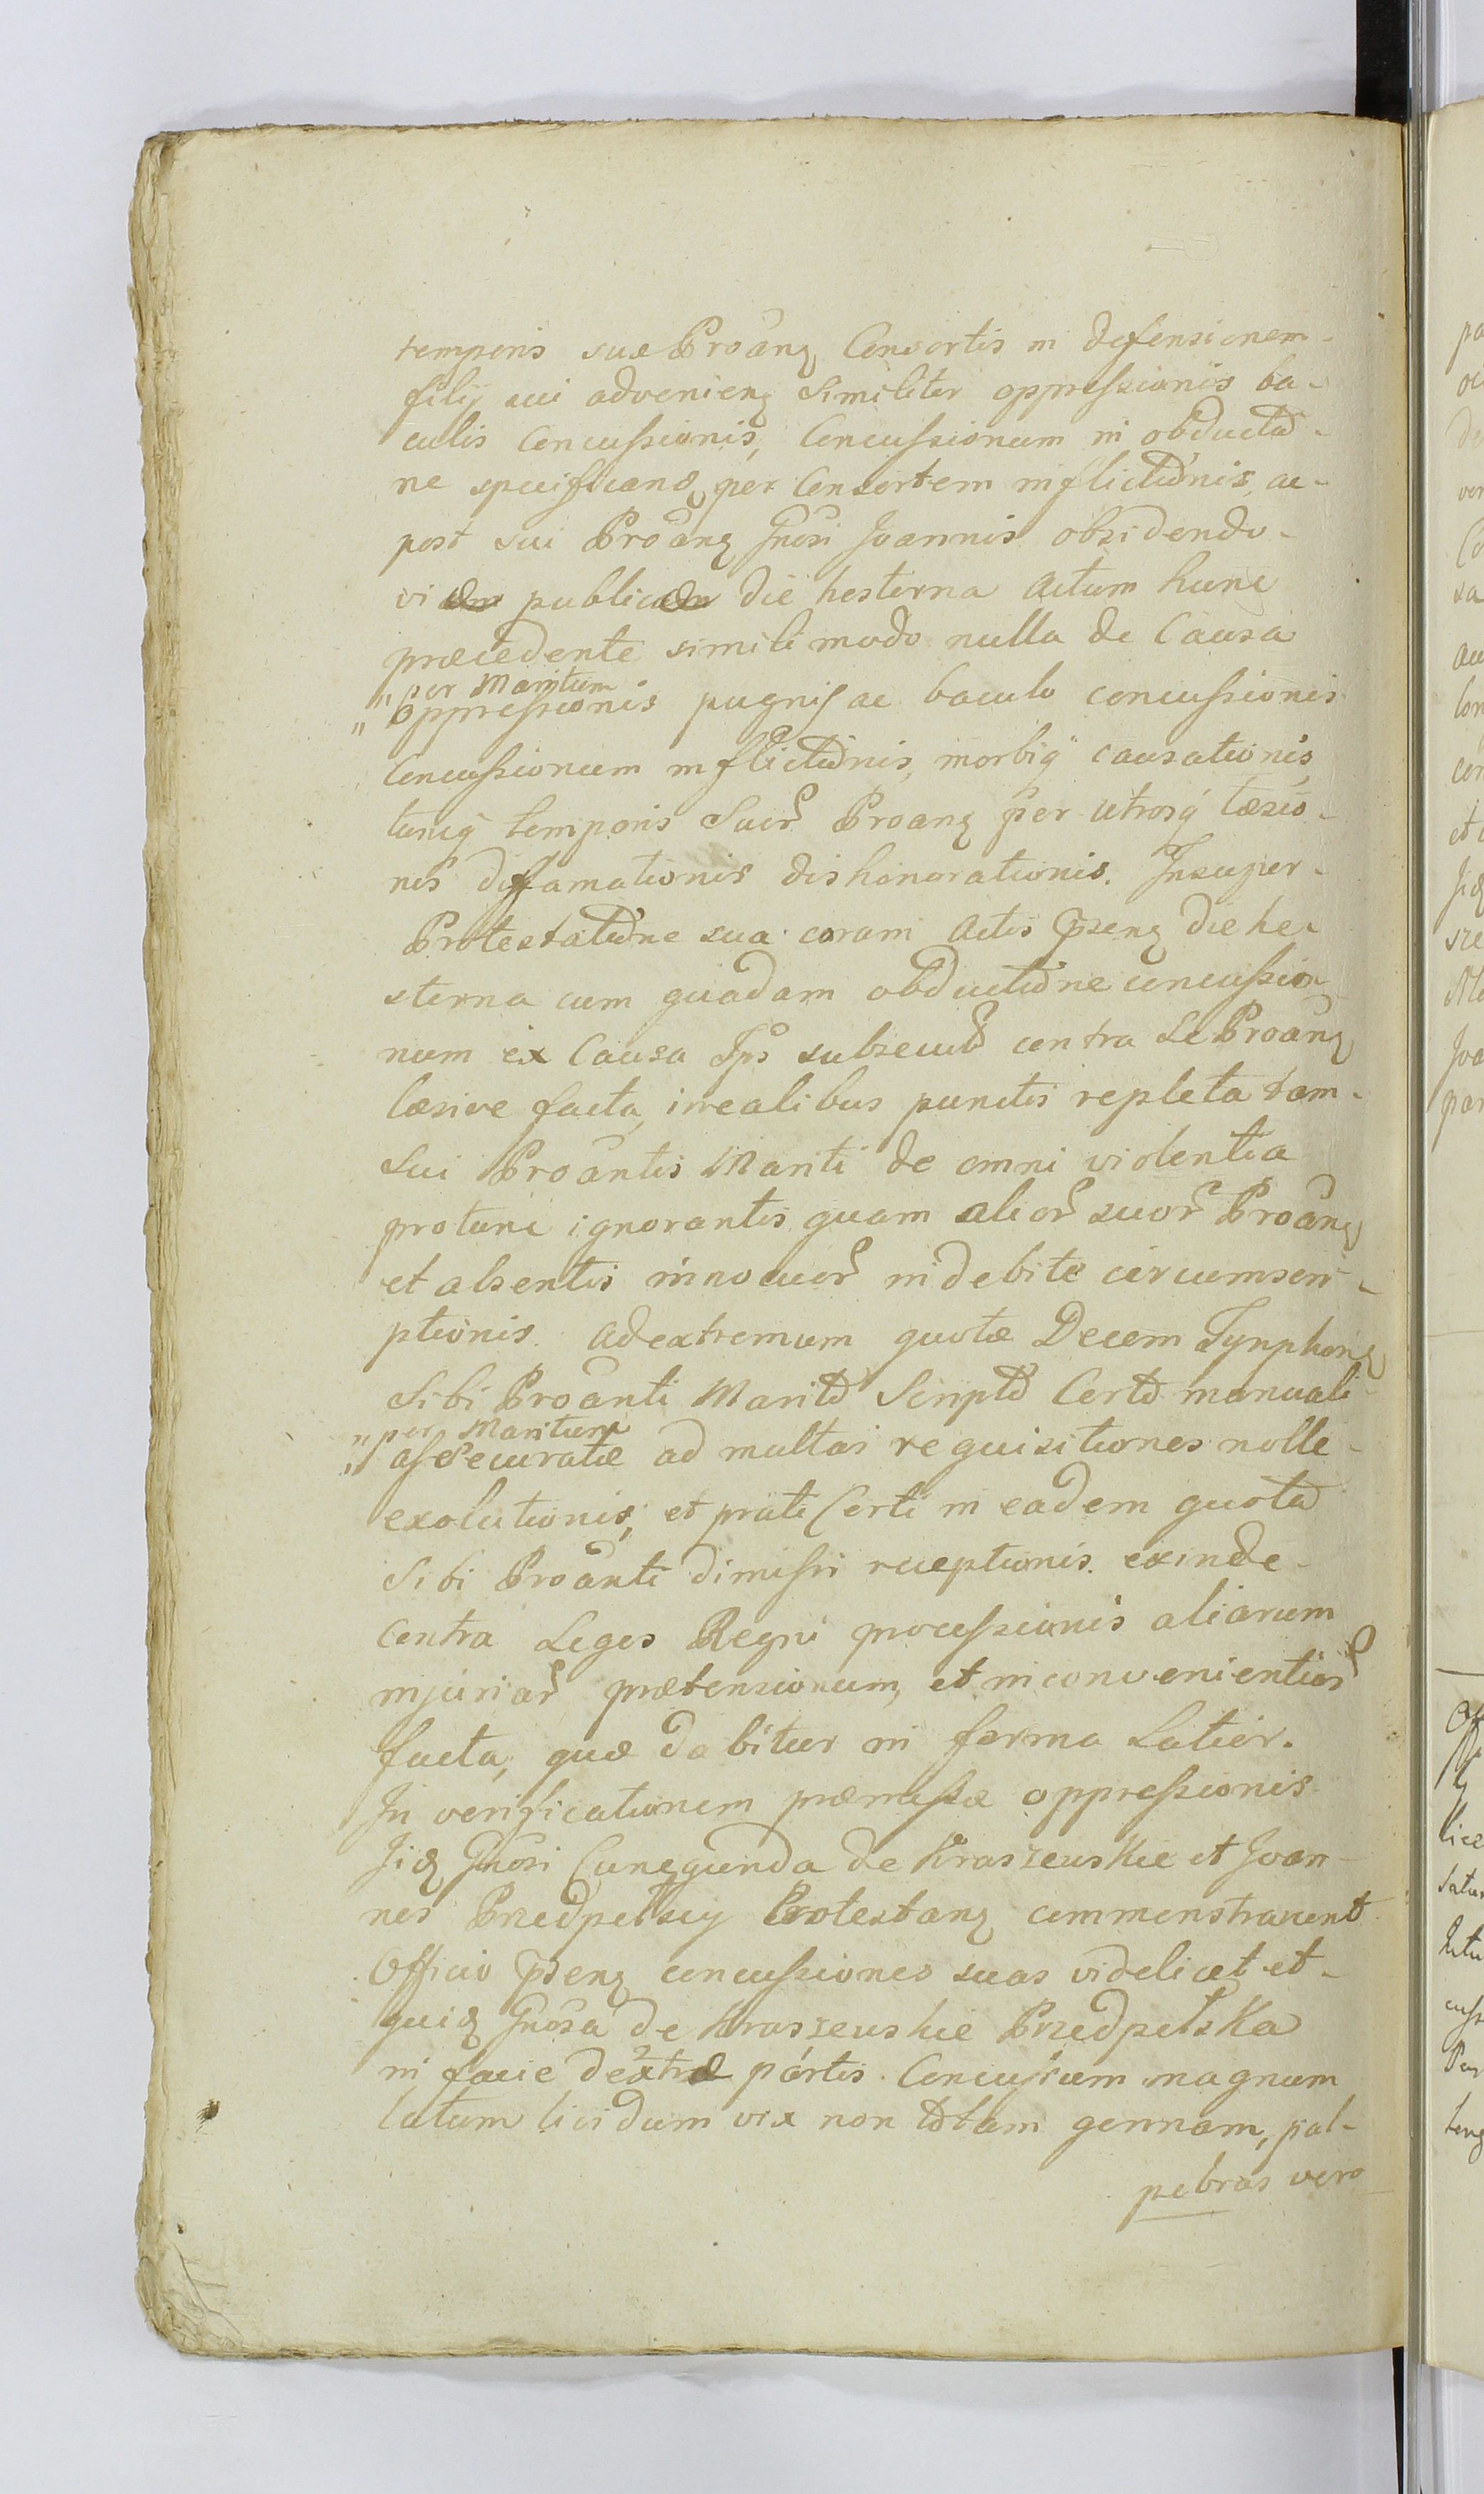 temporis suæ Proanq Consortis in defensionem
filij sui advenienq Similiter oppressionis ba-
culis Concussionis, Concussionum in obductõ-
ne specificand per Consortem inflictiõnis, ac
post sui Proanq Gnosi Joannis obsidendo
viæ publicæ die hesterna Actum hunc
præcedente simili modo nulla de Causa
" per Maritum
" oppressionis pugnis ac baculo concussionis
Concussionum inflictiõnis, morbiq causationis,
tuncq temporis Suor Proanq per utrosq læsio-
nis diffamationis dishonorationis. Insuper
Protestatiõne sua coram Actis Psenq die he-
sterna cum quadam obductiõne concussio-
num ex Causa Ips subsecut contra Se Proanq
læsive facta, irrealibus punctis repleta tam
Sui Proantis Mariti de omni violentia
protunc ignorantis quam alior suor Proanq
et absentis innocuor indebite circumscri-
ptionis. ad extremum quotæ Decem Tynphonq
Sibi Proanti Marito Scripto Certo manuali
" per Maritum
" assecuratæ ad multas requisitiones nolle
exolutionis, et præti Certi in eadem quota
Sibi Proanti dimissi receptionis. exinde
Contra Leges Regni processionis aliarum
injuriar prætensionum, et inconvenientiar
facta, quæ dabitur in forma Latior.
In verificationem præmissæ oppressionis
Iid Gnosi Cunegunda de Kraszewskie et Joan-
nes Przedpelscy Protestanq commonstrarunt
Officio Psenq concussiones suas videlicet et
quid Gnosa de Kraszewskie Przedpelska
in facie dextræ pártis Concussum magnum
latum lividum vix non totam gennam, pal-
pebras vero